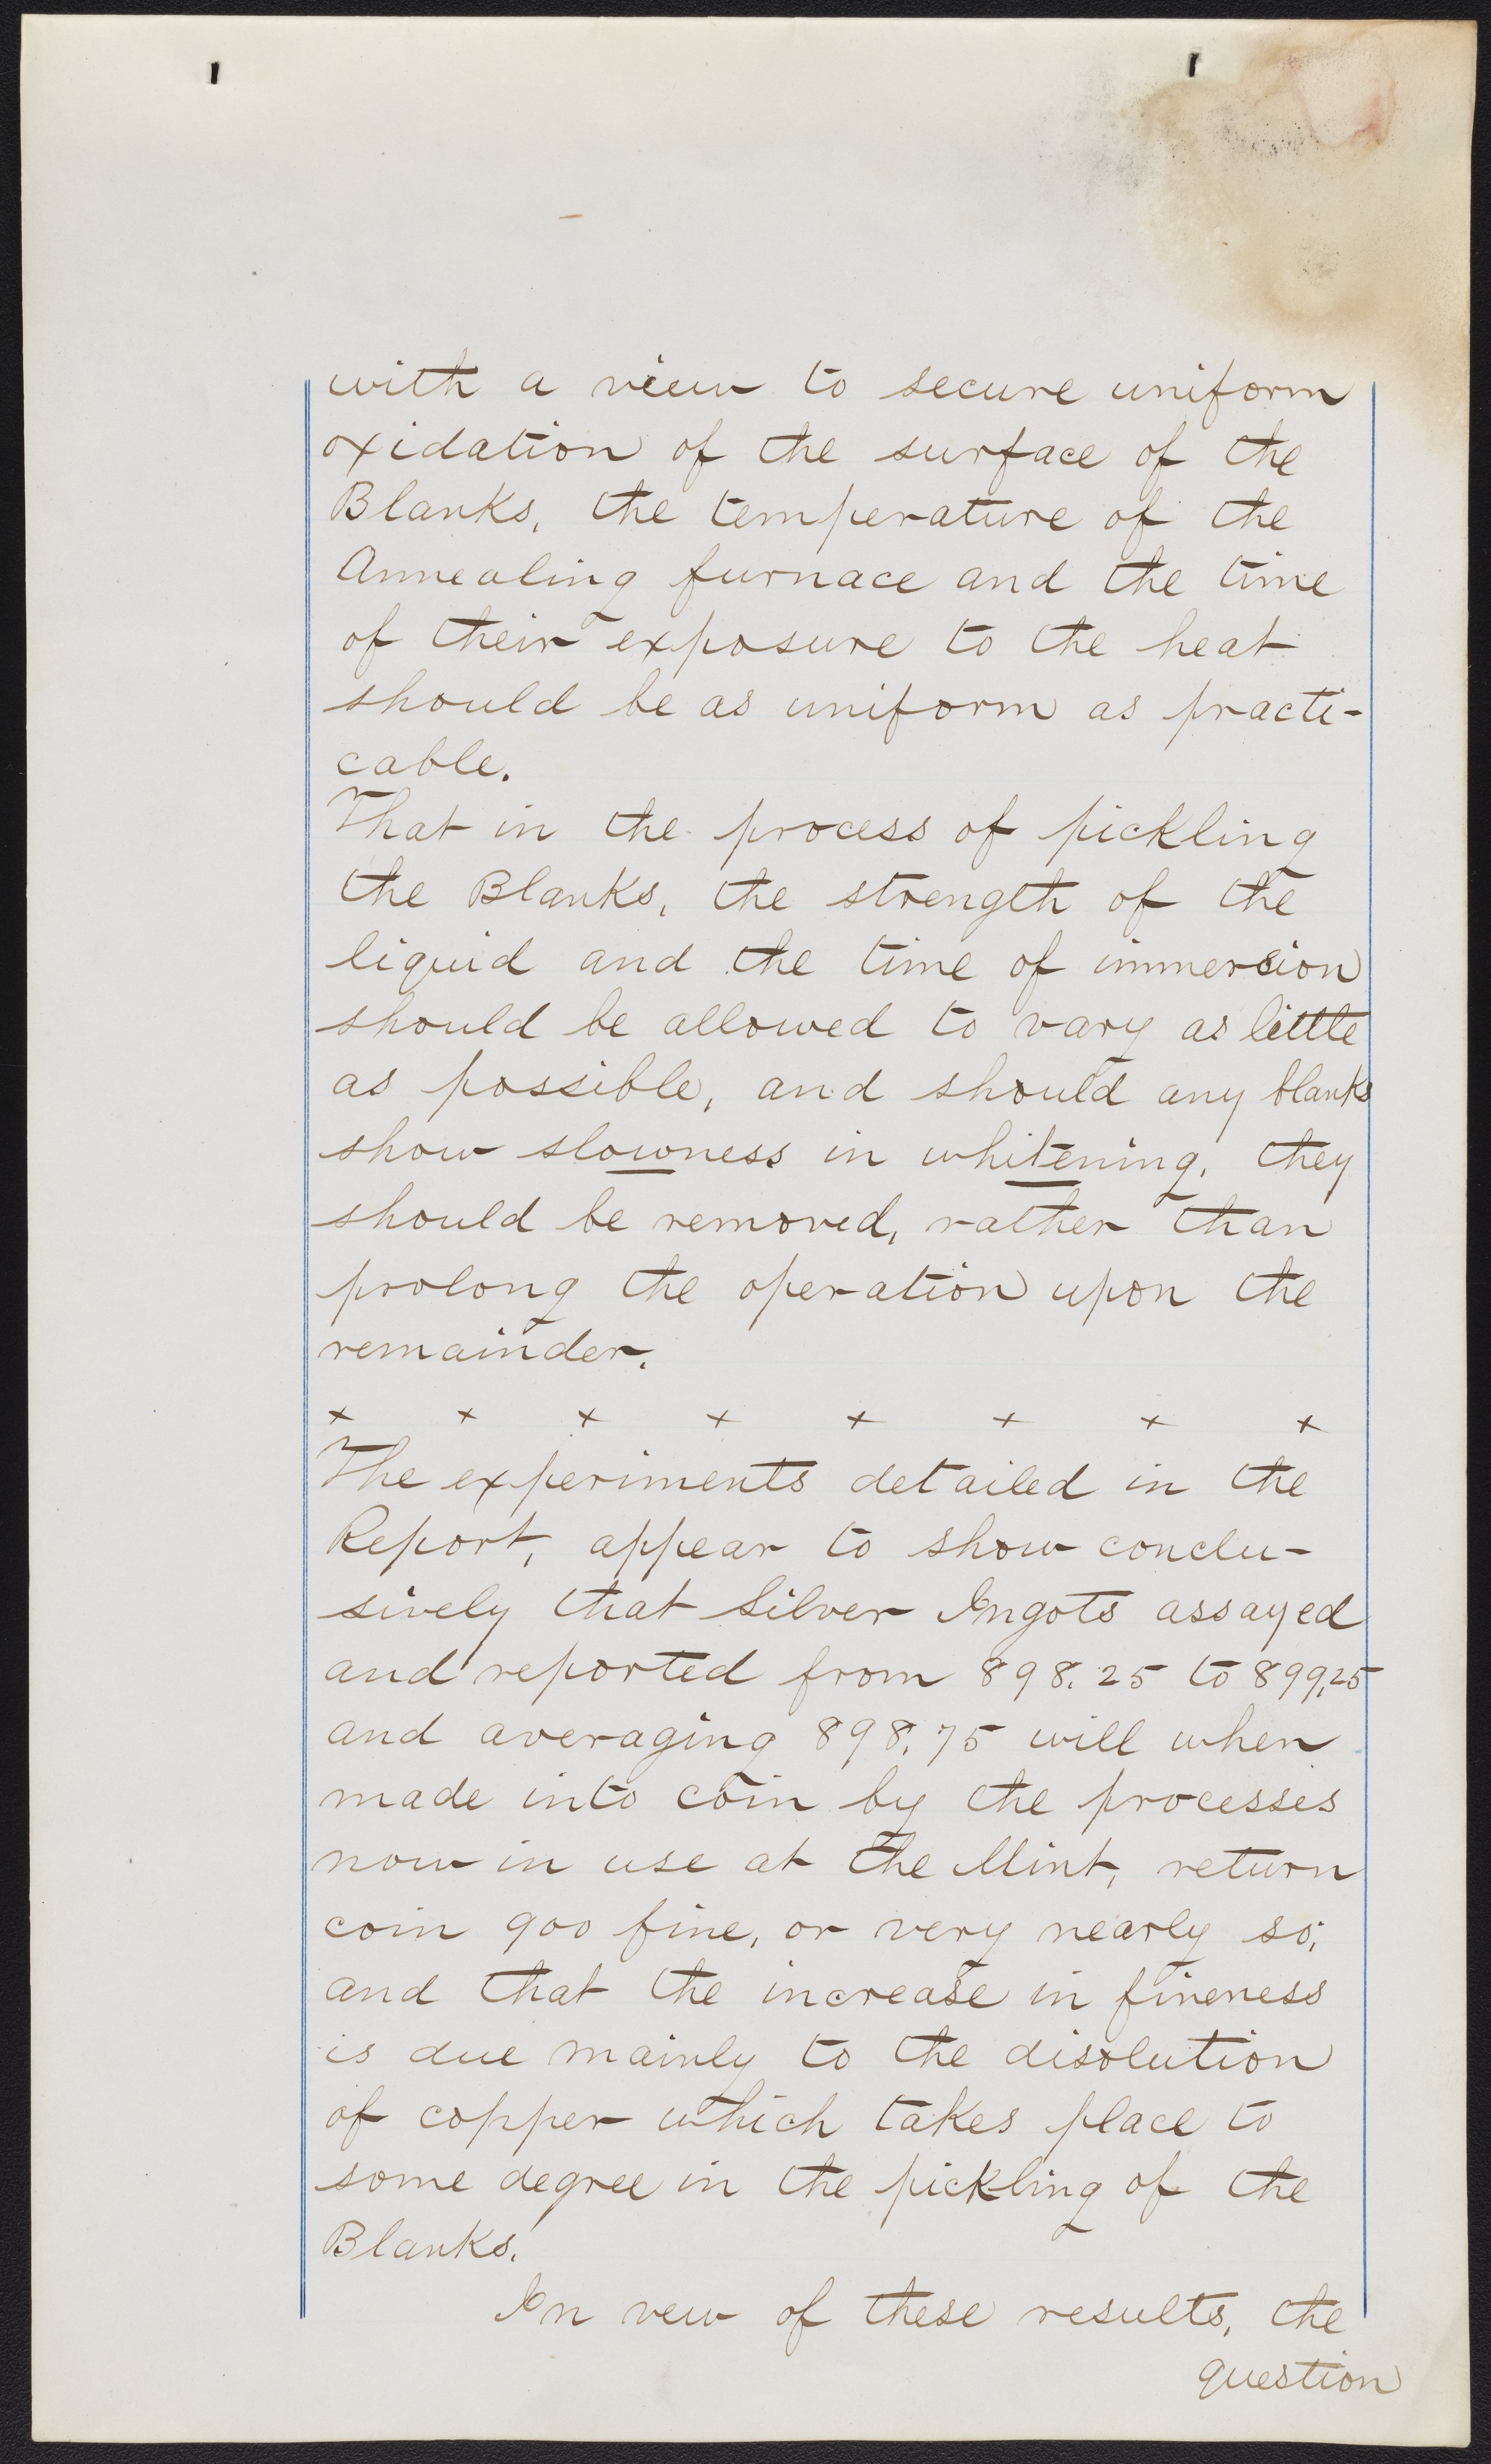 with a view to secure uniform
oxidation of the surface of the
Blanks, the temperature of the
Annealing furnace and the time
of their exposure to the heat
should be as uniform as practi-
cable.
That in the process of pickling
the Blanks, the strength of the
liquid and the time of immersion
should be allowed to vary as little
as possible, and should any blanks
show slowness in whitening, they
should be removed, rather than
prolong the operation upon the
remainder.
+ + + + + + + +
The experiments detailed in the
Report, appear to show conclu-
sively that Silver Ingots assayed
and reported from 898.25 to 899.25
and averaging 898.75 will when
made into coin by the processes
now in use at the Mint, return
coin 900 fine, or very nearly so;
and that the increase in fineness
is due mainly to the disolution
of copper which takes place to
some degree in the pickling of the
Blanks.
In veiw of these results, the
question